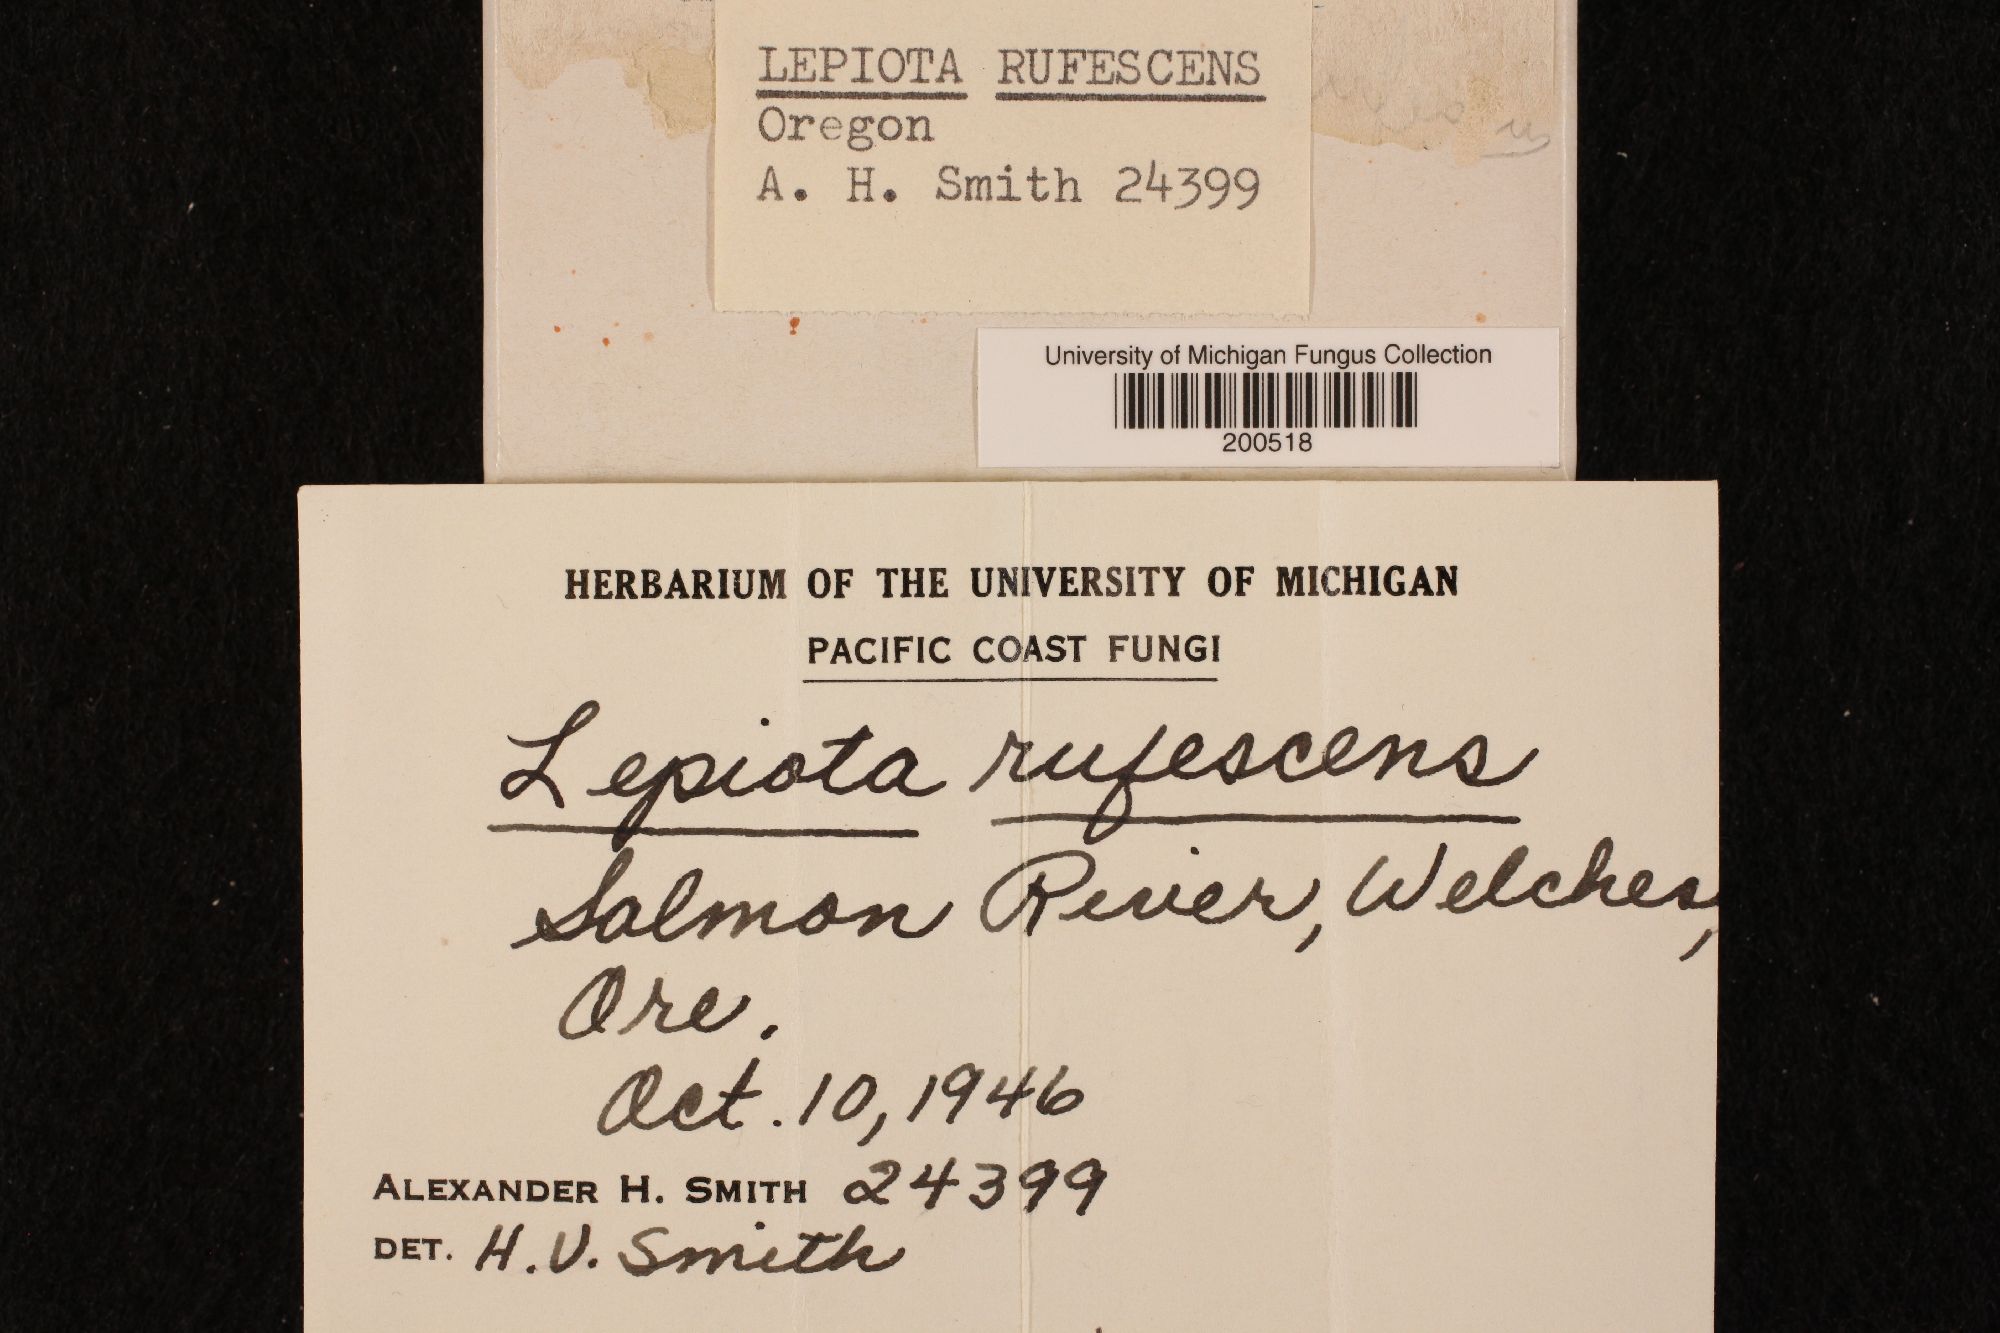 LEPIOTA RUFESCENS
Oregon
A. H. Smith 24399
University of Michigan Fungus Collection
200518
HERBARIUM OF THE UNIVERSITY OF MICHIGAN
PACIFIC COAST FUNGI
Lepiota rufescens
Salmon River, Welches,
Ore.
Oct. 10, 1946
ALEXANDER H. SMITH 24399
DET. H. V. Smith